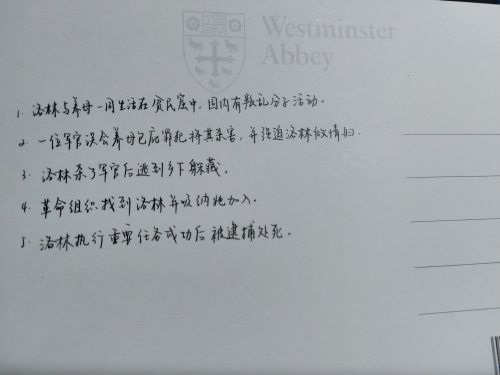 Westminster
Abbey
1. 洛林与养母一同生活在贫民窟中，国内有叛乱分子活动。
2. 一位军官误会养母包庇罪犯将其杀害，并强迫洛林做情妇。
3. 洛林杀了军官后逃到乡下躲藏。
4. 革命组织找到洛林并吸纳她加入。
5. 洛林执行重要任务成功后被逮捕处死。